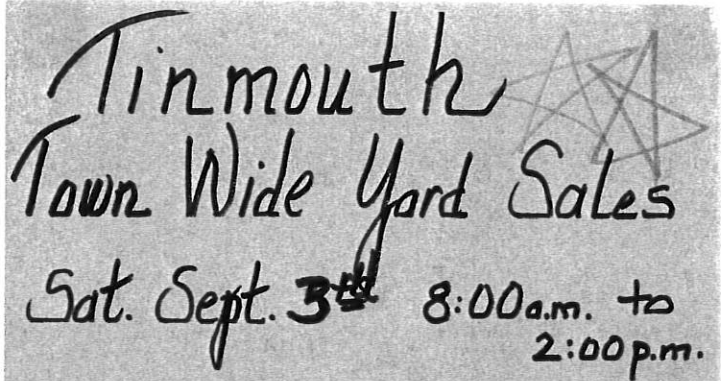 Tinmouth
Town Wide Yard Sales
Sat. Sept. 3rd 8:00a.m. to
2:00p.m.